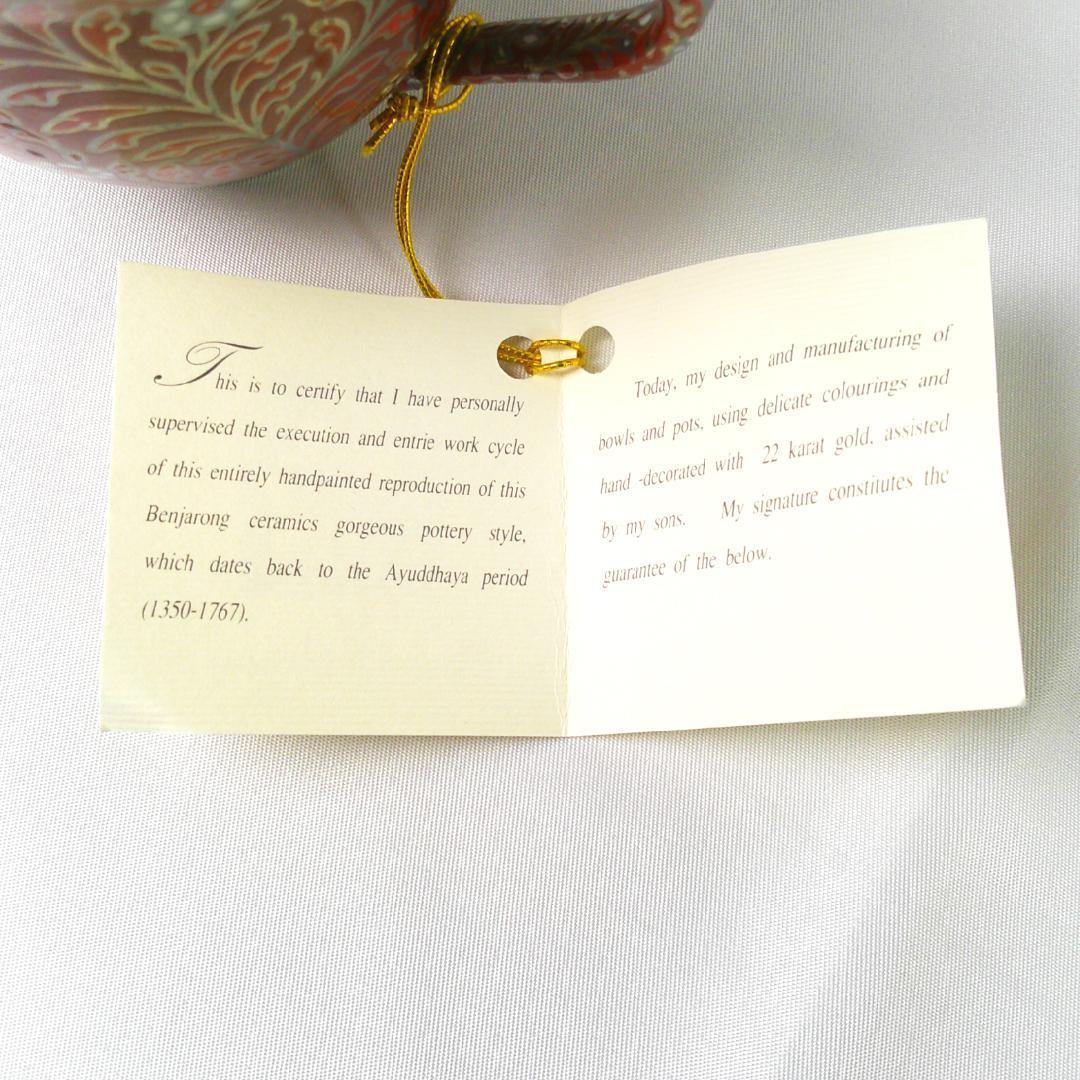 This is to certify that I have personally
supervised the execution and entrie work cycle
of this entirely handpainted reproduction of this
Benjarong ceramics gorgeous pottery style,
which dates back to the Ayuddhaya period
(1350-1767).
Today, my design and manufacturing of
bowls and pots, using delicate colourings and
hand -decorated with 22 karat gold, assisted
by my sons. My signature constitutes the
guarantee of the below.